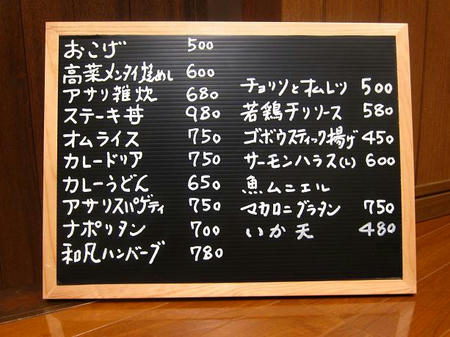 おこげ 500
高菜メンタイ焼めし 600
アサリ雑炊 680
ステーキ丼 980
オムライス 750
カレードリア 750
カレーうどん 650
アサリスパゲティ 750
ナポリタン 700
和風ハンバーグ 780
チョリソとオムレツ 500
若鶏チリソース 580
ゴボウスティック揚げ 450
サーモンハラス(し) 600
魚ムニエル
マカロニグラタン 750
いか天 480